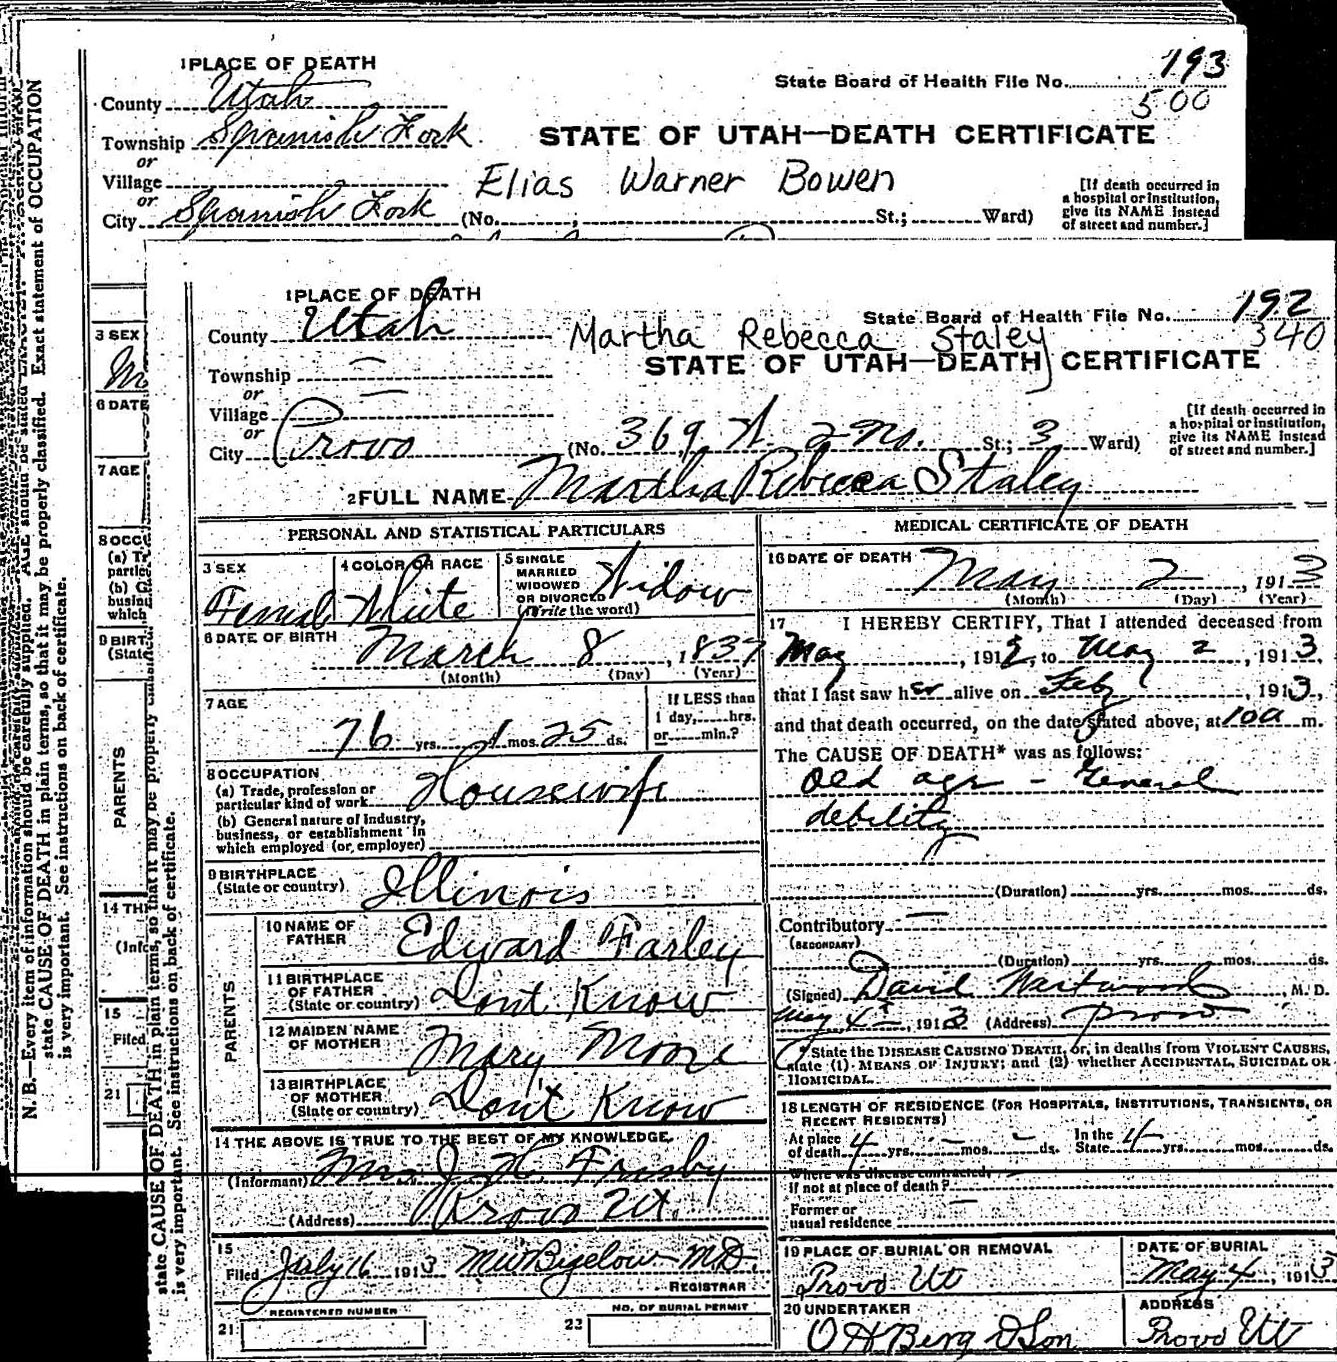 1 PLACE OF DEATH
State Board of Health File No. 193
500
County Utah
Township Spanish Fork
STATE OF UTAH—DEATH CERTIFICATE
or
Village
Elias Warner Bowen
or
City Spanish Fork (No. ; St.; Ward)
[If death occurred in
a hospital or institution,
give its NAME instead
of street and number.]
3 SEX
6 DATE
7 AGE
8 OCC
(a) T
partic
(b) G
busin
which
9 BIRT
(State
PARENTS
14 TH
(Inf
15
Filed
21
N. B.—Every item of information should be carefully supplied. AGE should be stated EXACTLY.
state CAUSE OF DEATH in plain terms, so that it may be properly classified. Exact statement of OCCUPATION
is very important. See instructions on back of certificate.
state CAUSE OF DEATH in plain terms, so that it may be properly
is very important. See instructions on back of certificate.
1 PLACE OF DEATH
County Utah
State Board of Health File No. 192
340
Martha Rebecca Staley
STATE OF UTAH—DEATH CERTIFICATE
Township —
or
Village —
or
City Provo (No. 369 W. 2 No. St.; 3 Ward)
[If death occurred in
a hospital or institution,
give its NAME instead
of street and number.]
2 FULL NAME Martha Rebecca Staley
PERSONAL AND STATISTICAL PARTICULARS
3 SEX Femal
4 COLOR OR RACE White
5 SINGLE
MARRIED
WIDOWED
OR DIVORCED
(Write the word) Widow
6 DATE OF BIRTH
March 8, 1837
(Month) (Day) (Year)
7 AGE
76 yrs. 1 mos. 25 ds.
If LESS than
1 day, hrs.
or min.?
8 OCCUPATION
(a) Trade, profession or
particular kind of work Housewife
(b) General nature of Industry,
business, or establishment in
which employed (or employer)
9 BIRTHPLACE
(State or country) Illinois
PARENTS
10 NAME OF
FATHER Edward Farley
11 BIRTHPLACE
OF FATHER
(State or country) Dont Know
12 MAIDEN NAME
OF MOTHER Mary Moore
13 BIRTHPLACE
OF MOTHER
(State or country) Don't Know
14 THE ABOVE IS TRUE TO THE BEST OF MY KNOWLEDGE.
(Informant) Mrs J. H. Frisby
(Address) Provo Ut.
15
Filed July 16 1913 MW Bigelow M.D.
REGISTRAR
REGISTERED NUMBER
21
NO. OF BURIAL PERMIT
22
MEDICAL CERTIFICATE OF DEATH
16 DATE OF DEATH May 2, 1913
(Month) (Day) (Year)
17 I HEREBY CERTIFY, That I attended deceased from
May, 1912, to May 2, 1913,
that I last saw her alive on Feby, 1913,
and that death occurred, on the date stated above, at 10 a m.
The CAUSE OF DEATH* was as follows:
Old age - General
debility
(Duration) yrs. mos. ds.
Contributory —
(SECONDARY)
(Duration) yrs. mos. ds.
(Signed) David Westwood M. D.
May 4th, 1913 (Address) Provo
*State the DISEASE CAUSING DEATH, or, in deaths from VIOLENT CAUSES,
state (1) MEANS OF INJURY; and (2) whether ACCIDENTAL, SUICIDAL OR
HOMICIDAL.
18 LENGTH OF RESIDENCE (FOR HOSPITALS, INSTITUTIONS, TRANSIENTS, OR
RECENT RESIDENTS)
At place
of death 4 yrs. - mos. - ds.
In the
State 4 yrs. mos. ds.
Where was disease contracted,
if not at place of death? —
Former or
usual residence —
19 PLACE OF BURIAL OR REMOVAL
Provo Ut
DATE OF BURIAL
May 4, 1913
20 UNDERTAKER
O H Berg & Son
ADDRESS
Provo Ut